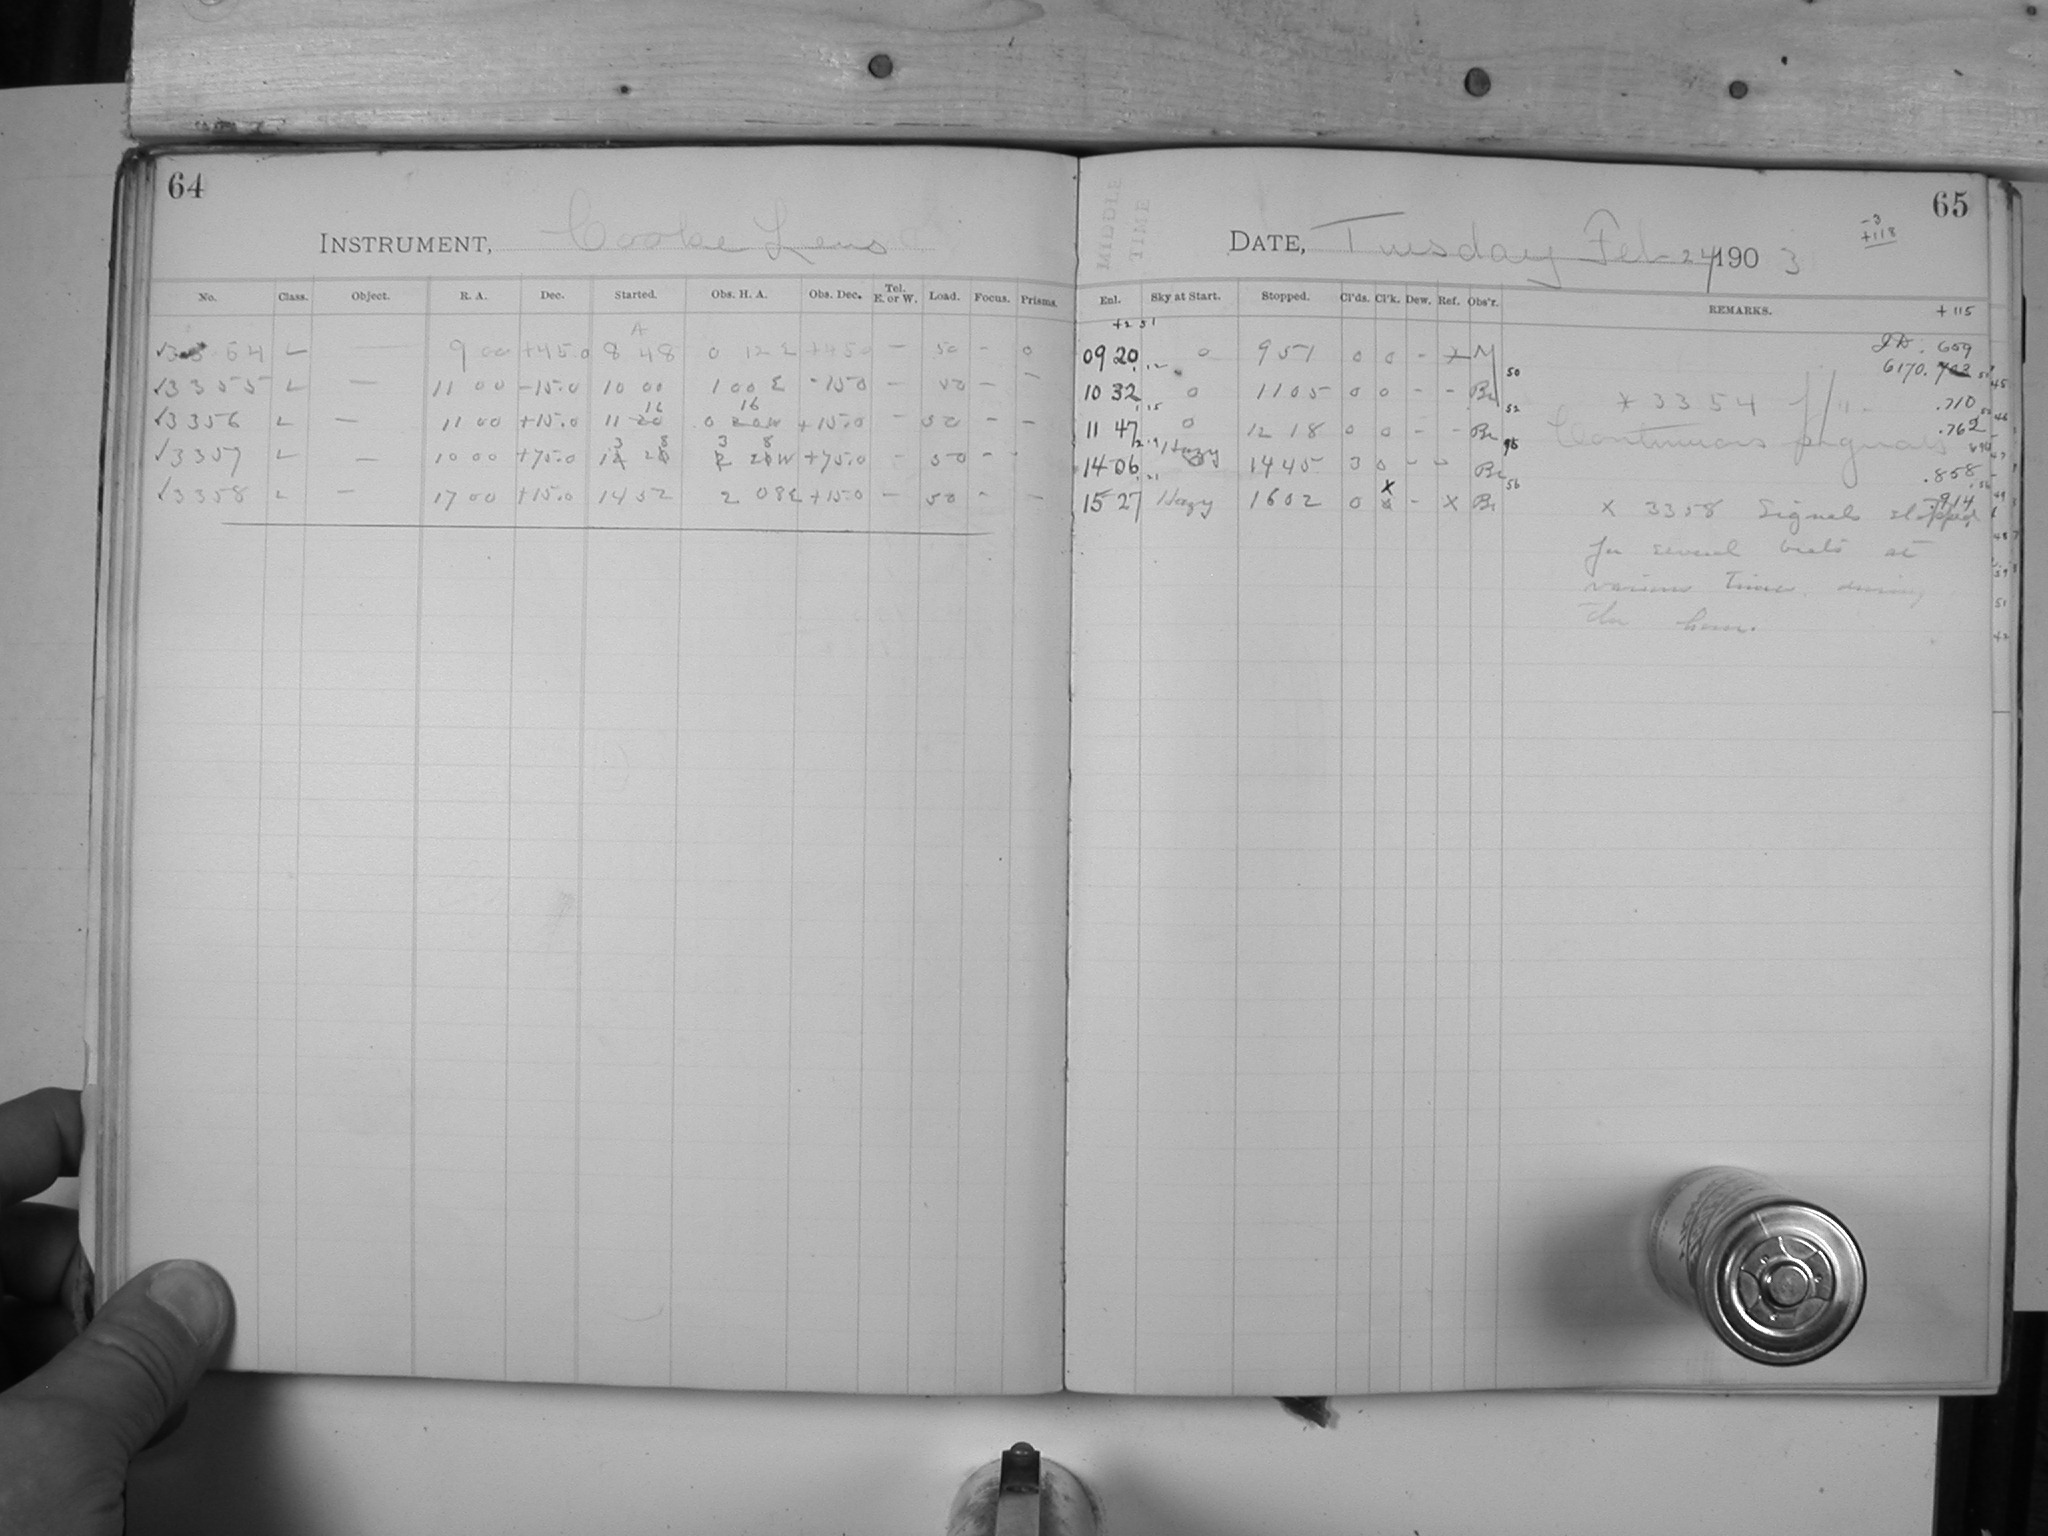 64
INSTRUMENT, Cooke Lens
No. Class. Object. R. A. Dec. Started. Obs. H. A. Obs. Dec. Tel. E. or W. Load. Focus. Prisms.
A
√3354 L — 9 00 +45.0 8 48 0 12 E +45.0 — 50 - 0
√3355 L — 11 00 -15.0 10 00 1 00 E -15.0 — 50 — —
16 16
√3356 L — 11 00 +15.0 11 20 0 20W +15.0 - 50 - -
3 8 3 8
√3357 L — 10 00 +75.0 +75.0 - 50 - -
√3358 L — 17 00 +15.0 14 52 2 08E +15.0 — 50 - —
65
MIDDLE TIME
DATE, Tuesday Feb 24 1903
-3
+118
Enl. Sky at Start. Stopped. Cl'ds. Cl'k. Dew. Ref. Obs'r. REMARKS. +115
+2 51
09 20 0 9 51 0 0 - M J.D. .659
.12 50 6170.
10 32 0 11 05 0 0 - - Br * 3354 .710
.15 52
11 47 0 12 18 0 0 - - Br Continuous signals .762
2.9 95
14 06 Hazy 14 45 3 0 - - Br .858
.21 56
15 27 Hazy 16 02 0 x - x Br .914
x 3358 Signals stopped
for several beats at
various times during
the hour.